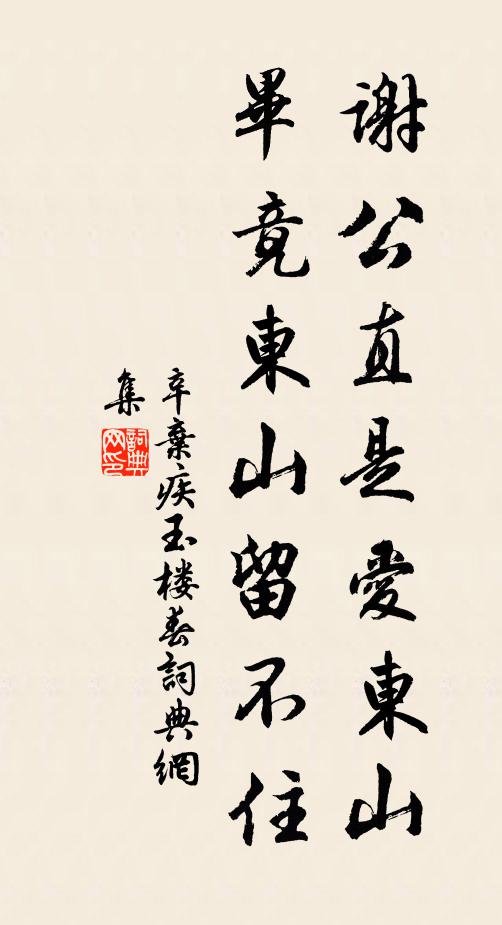 謝公直是愛東山
畢竟東山留不住
辛棄疾玉楼春詞典網
集
詞典网印